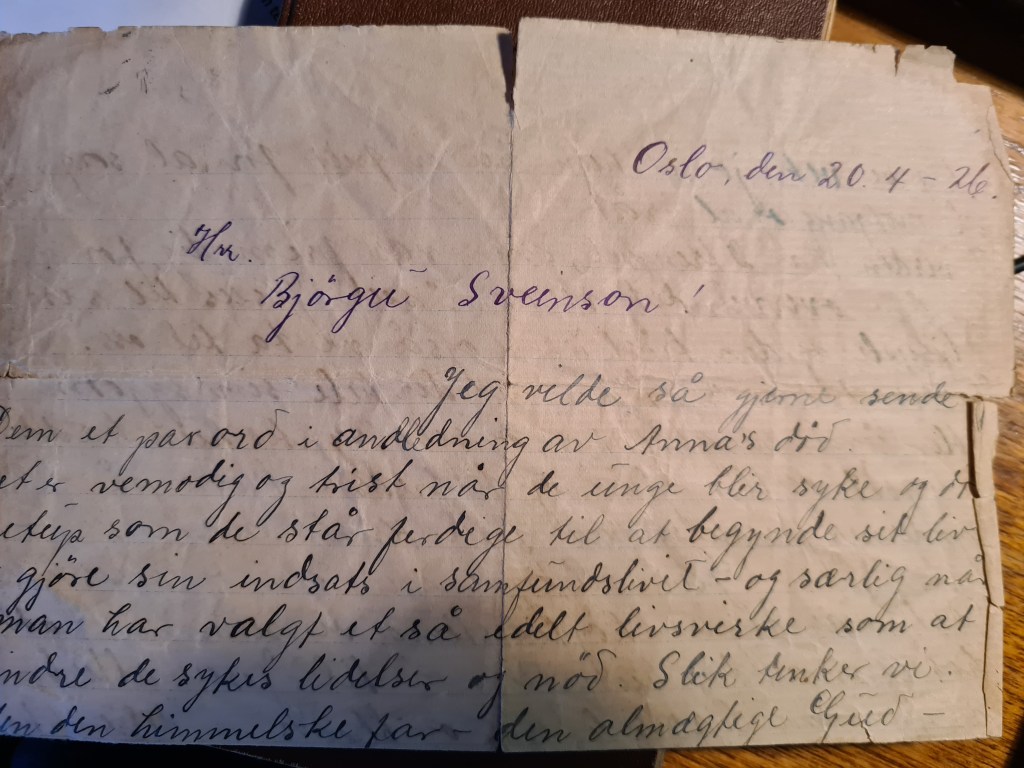 Oslo, den 20.4-26.
Hrr.
Björgu Sveenson!
Jeg vilde så gjerne sende
Dem et par ord i andledning av Anna's död.
et er vemodig og trist når de unge blir syke og dö
etup som de står ferdige til at begynde sit liv
gjöre sin indsats i samfundslivet - og særlig når
man har valgt et så edelt livsvirke som at
indre de sykes lidelser og nöd. Slik tenker vi.
en den himmelske far - den almægtige Gud -